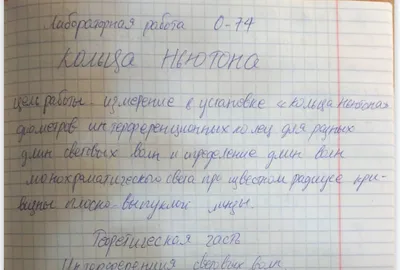 Лабораторная работа О-74
КОЛЬЦА НЬЮТОНА
Цель работы: измерение в установке «кольца Ньютона»
диаметров интерференционных колец для разных
длин световых волн и определение длин волн
монохроматического света при известном радиусе кри-
визны плоско-выпуклой линзы.
Теоретическая часть
Интерференция световых волн